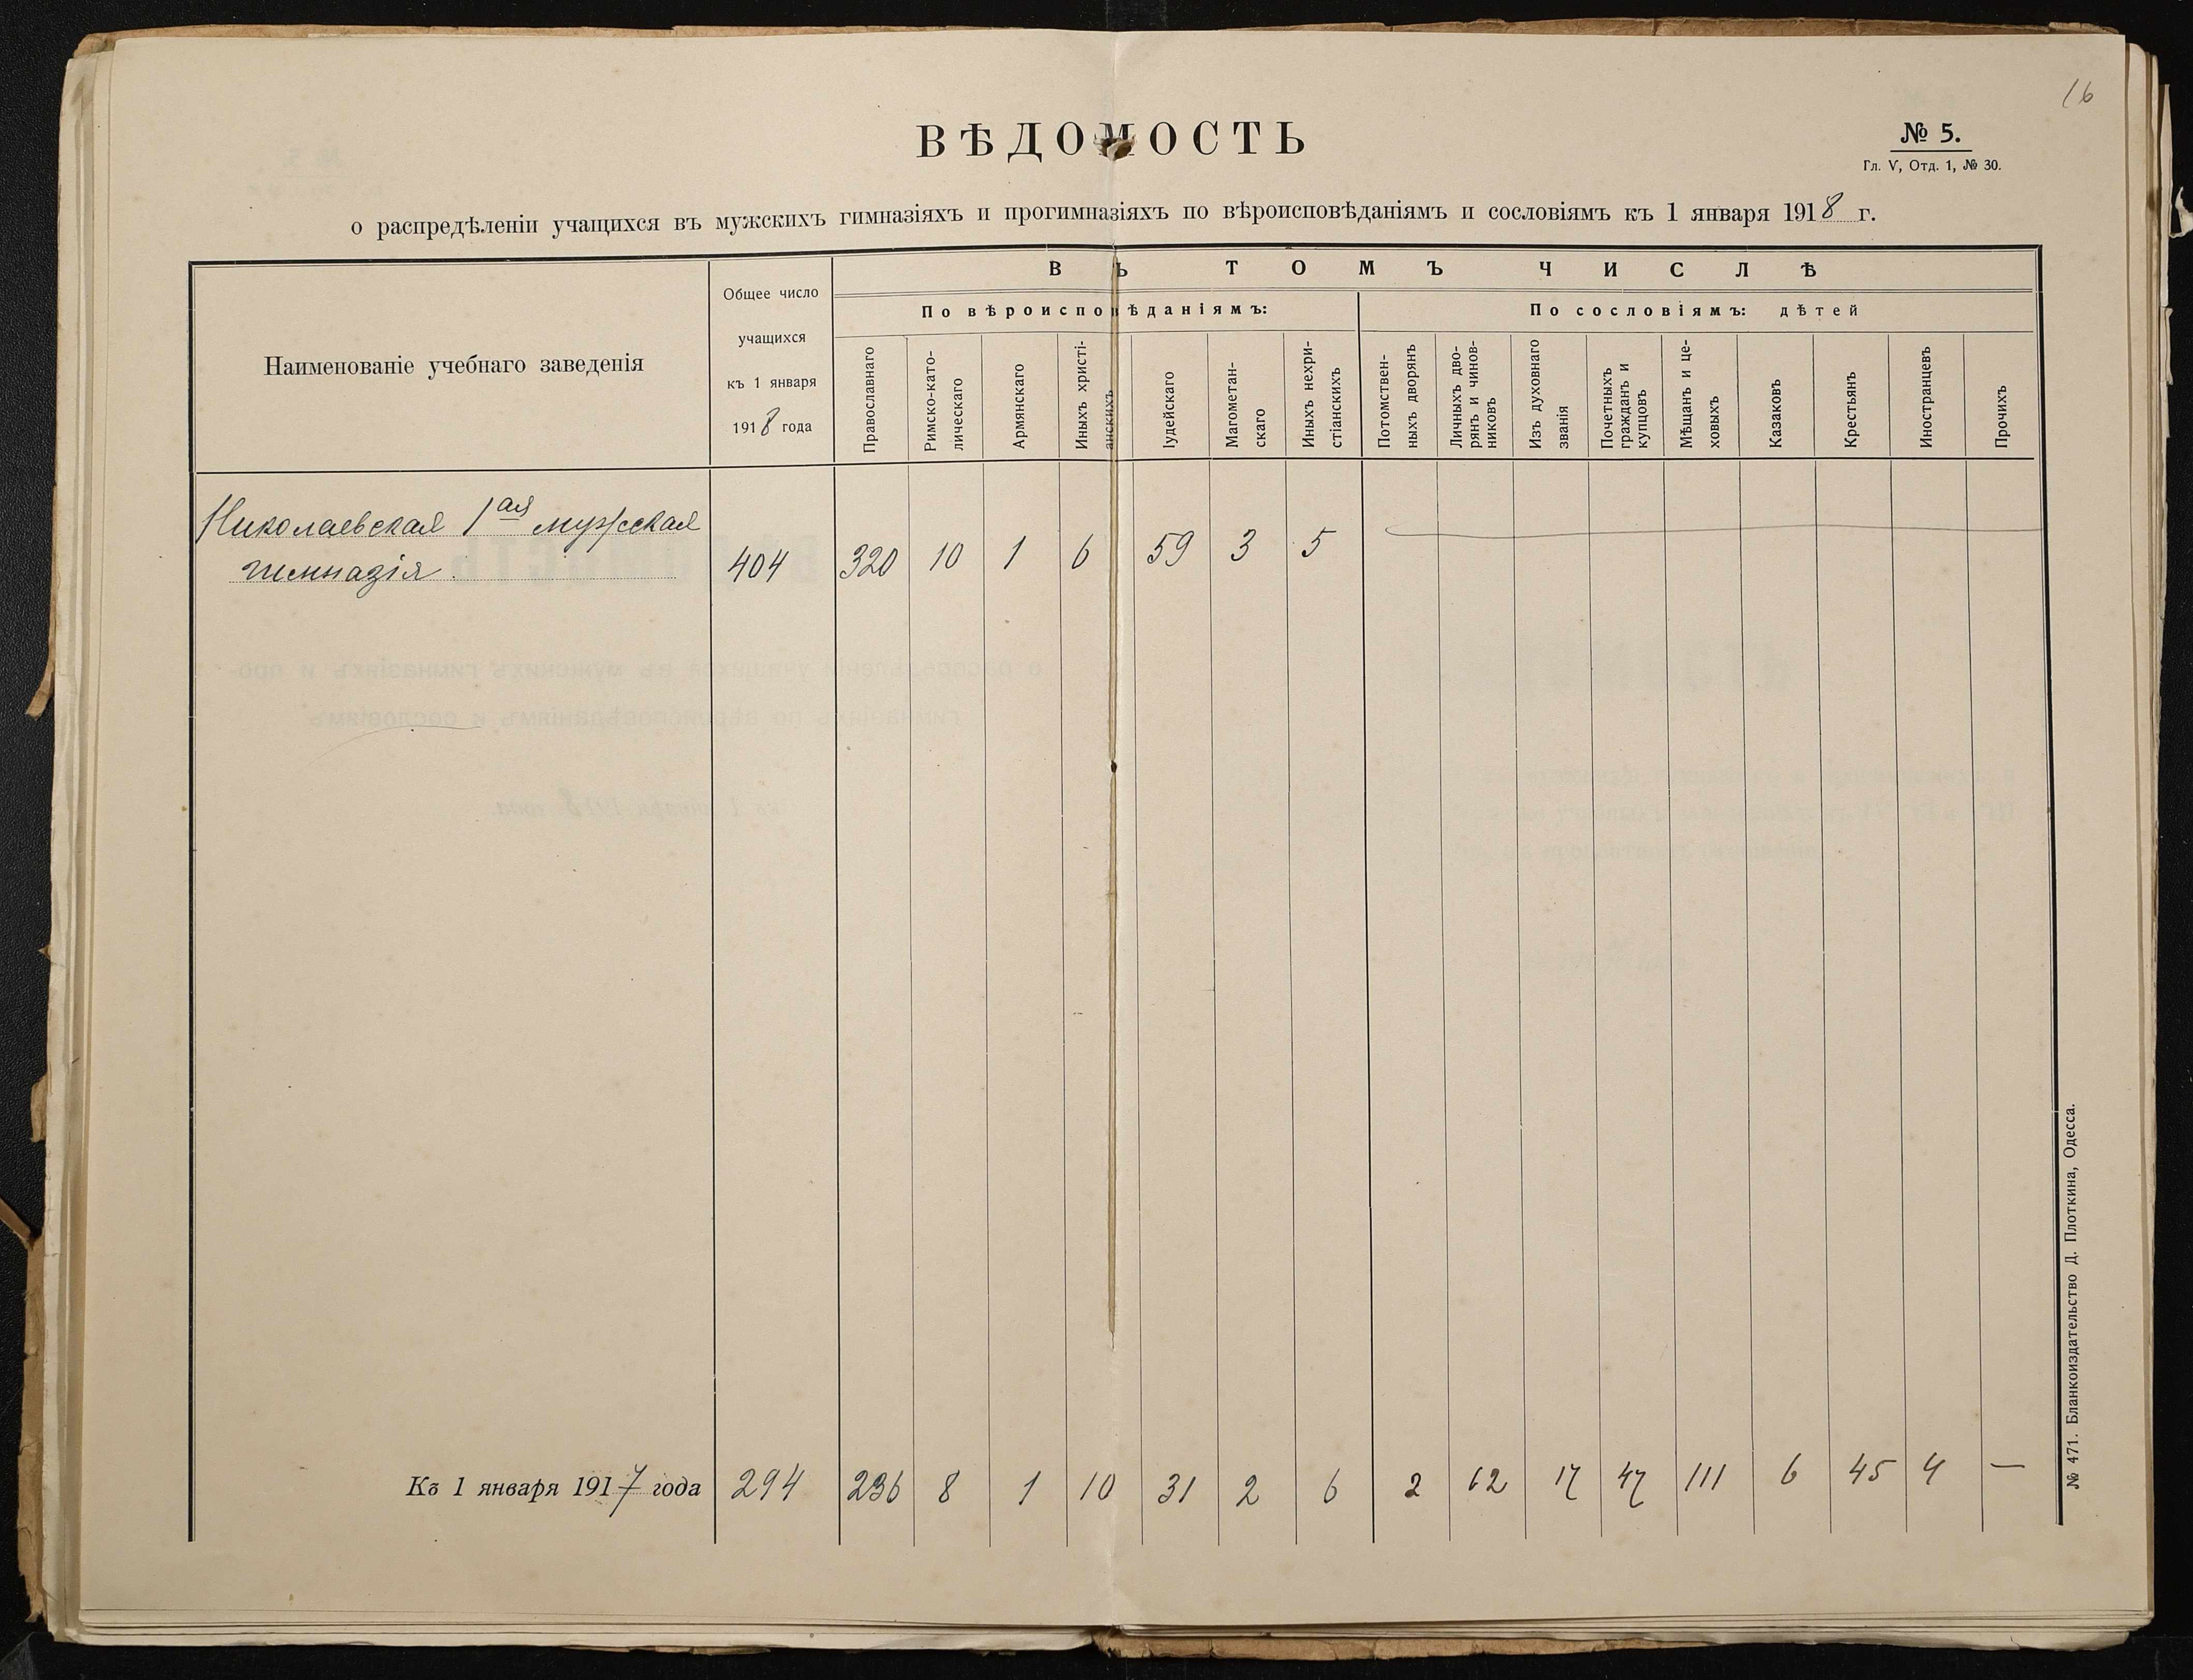 16
ВѢДОМОСТЬ
№ 5.
Гл. V, Отд. 1, № 30.
о распредѣленіи учащихся въ мужскихъ гимназіяхъ и прогимназіяхъ по вѣроисповѣданіямъ и сословіямъ къ 1 января 1918 г.
Наименованіе учебнаго заведенія
Общее число
учащихся
къ 1 января
1918 года
ВЪ ТОМЪ ЧИСЛѢ
По вѣроисповѣданіямъ:
По сословіямъ: дѣтей
Православнаго
Римско-като-
лическаго
Армянскаго
Иныхъ христі-
анскихъ
Іудейскаго
Магометан-
скаго
Иныхъ нехри-
стіанскихъ
Потомствен-
ныхъ дворянъ
Личныхъ дво-
рянъ и чинов-
никовъ
Изъ духовнаго
званія
Почетныхъ
гражданъ и
купцовъ
Мѣщанъ и це-
ховыхъ
Казаковъ
Крестьянъ
Иностранцевъ
Прочихъ
Николаевская 1ая мужская
гимназія 404 320 10 1 6 59 3 5
Къ 1 января 1917 года 294 236 8 1 10 31 2 6 2 62 17 47 111 6 45 4 —
№ 471. Бланкоиздательство Д. Плоткина, Одесса.